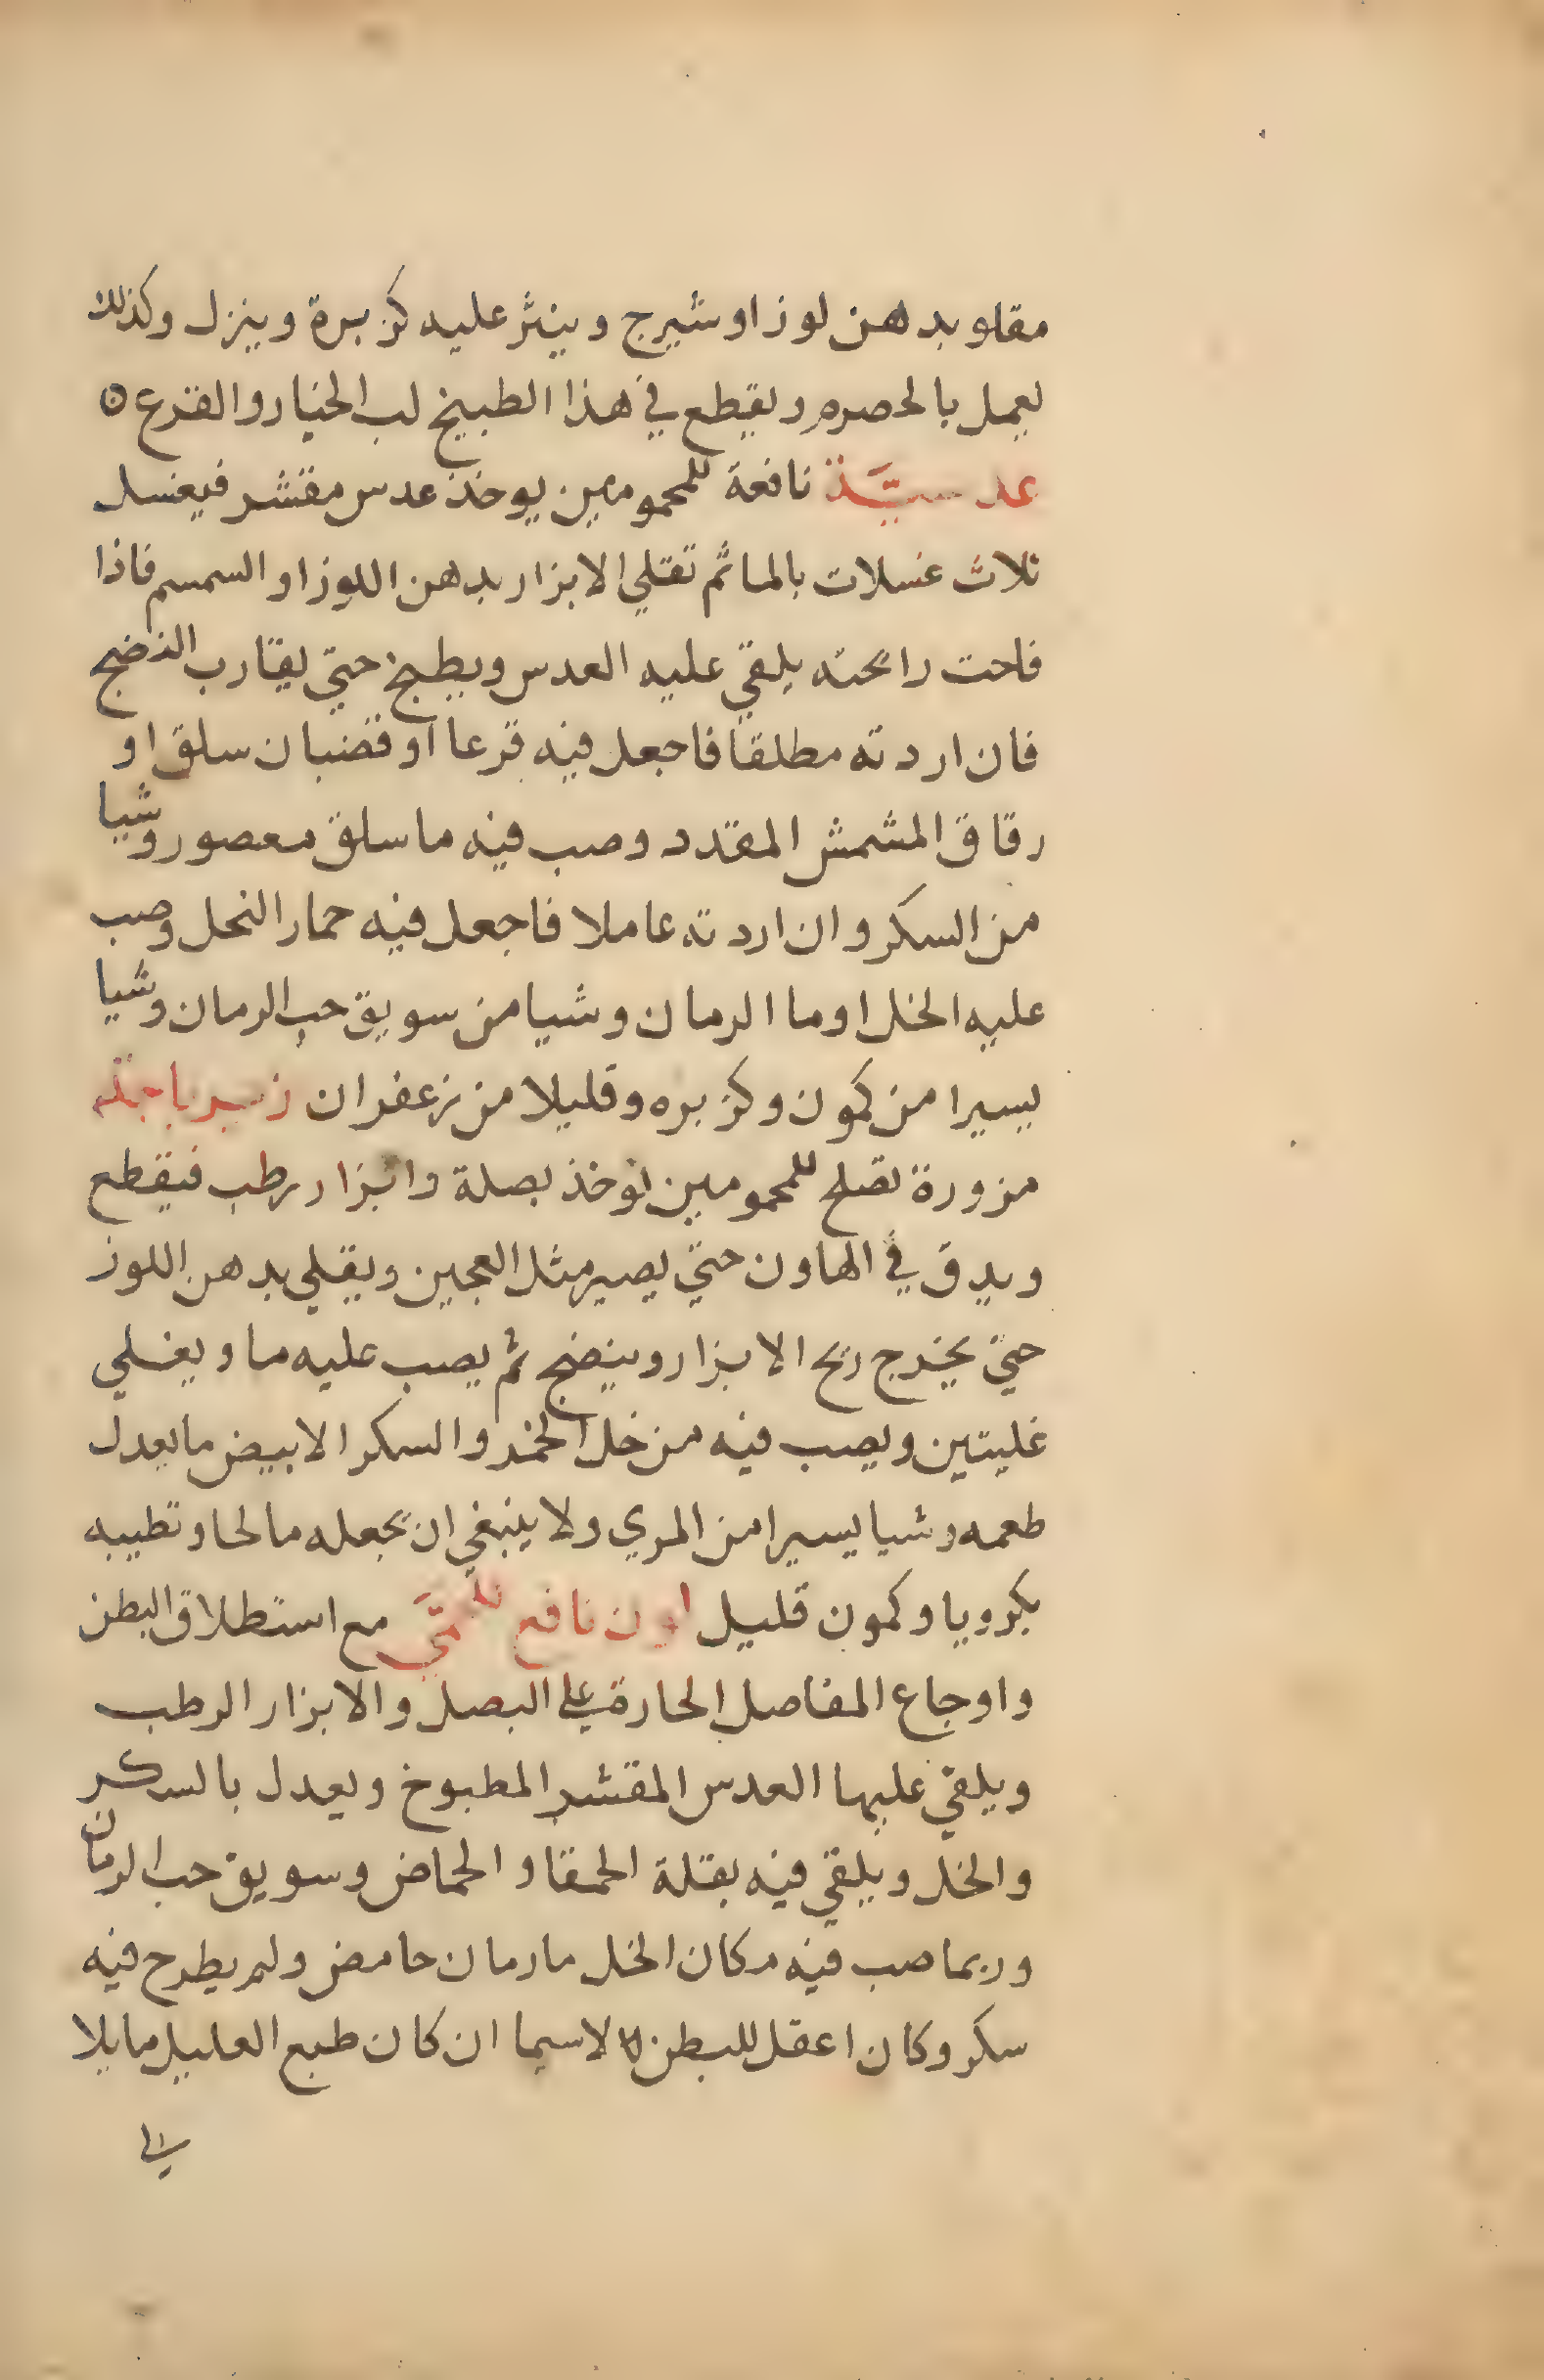 مقلو بدهن لوز او شيرج وينثر عليه كزبرة وينزل وكذلك
يعمل بالحصرم ويقطع في هذا الطبيخ لب الخيار والقرع ه
عدسيَّة نافعة للمحمومين يوخذ عدس مقشر فيغسل
ثلاث غسلات بالما ثم تقلي الابزار بدهن اللوز او السمسم فاذا
فاحت رائحته يلقي عليه العدس ويطبخ حتي يقارب النضج
فان اردته مطلقا فاجعل فيه قرعا او قضبان سلق او
رقاق المشمش المقدد وصب فيه ما سلق معصور وشيا
من السكر وان اردته عاملا فاجعل فيه حمار النحل وصب
عليه الخل او ما الرمان وشيا من سويق حب الرمان وشيا
يسيرا من كمون وكزبره وقليلا من زعفران زيرباجة
مزورة تصلح للمحمومين توخذ بصلة وابزار رطب فيقطع
ويدق في الهاون حتي يصير مثل العجين ويقلي بدهن اللوز
حتي يخرج ريح الابزار وينضج ثم يصب عليه ما ويغلي
غليتين ويصب فيه من خل الخمر والسكر الابيض ما يعدل
طعمه وشيا يسيرا من المري ولا ينبغي ان تجعله مالحا وتطيبه
بكرويا وكمون قليل لون نافع للحمَّي مع استطلاق البطن
واوجاع المفاصل الحارة علي البصل والابزار الرطب
ويلقي عليها العدس المقشر المطبوخ ويعدل بالسكر
والخل ويلقي فيه بقلة الحمقا والحماض وسويق حب الرمان
وربما صب فيه مكان الخل ما رمان حامض ولم يطرح فيه
سكر وكان اعقل للبطن لا لاسيما ان كان طبع العليل مايلا
الي